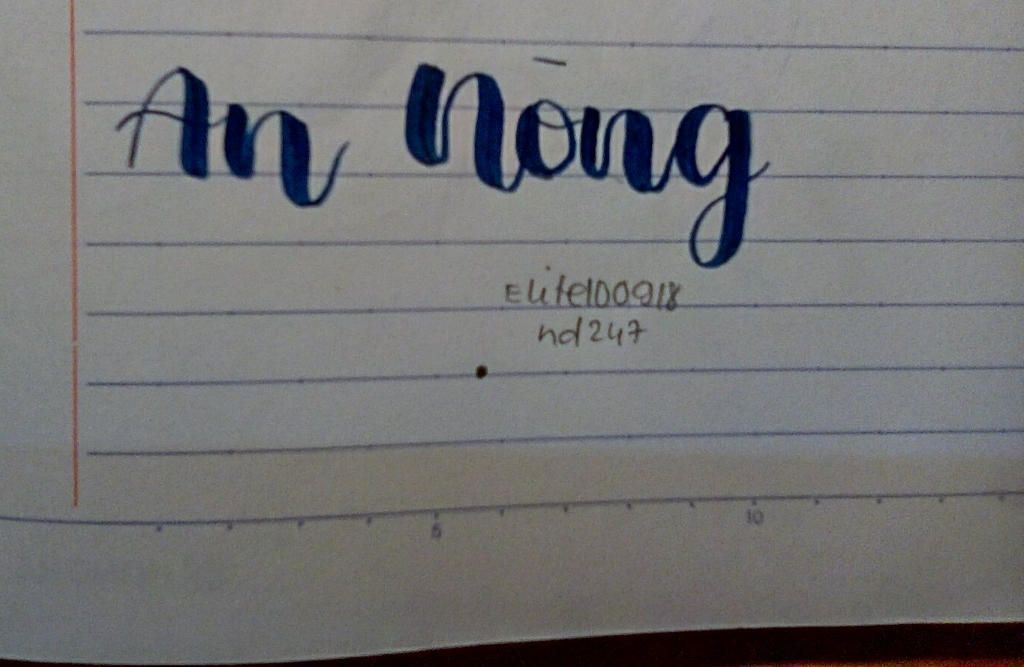 An Nòng
Elite100918
nd247
5 10